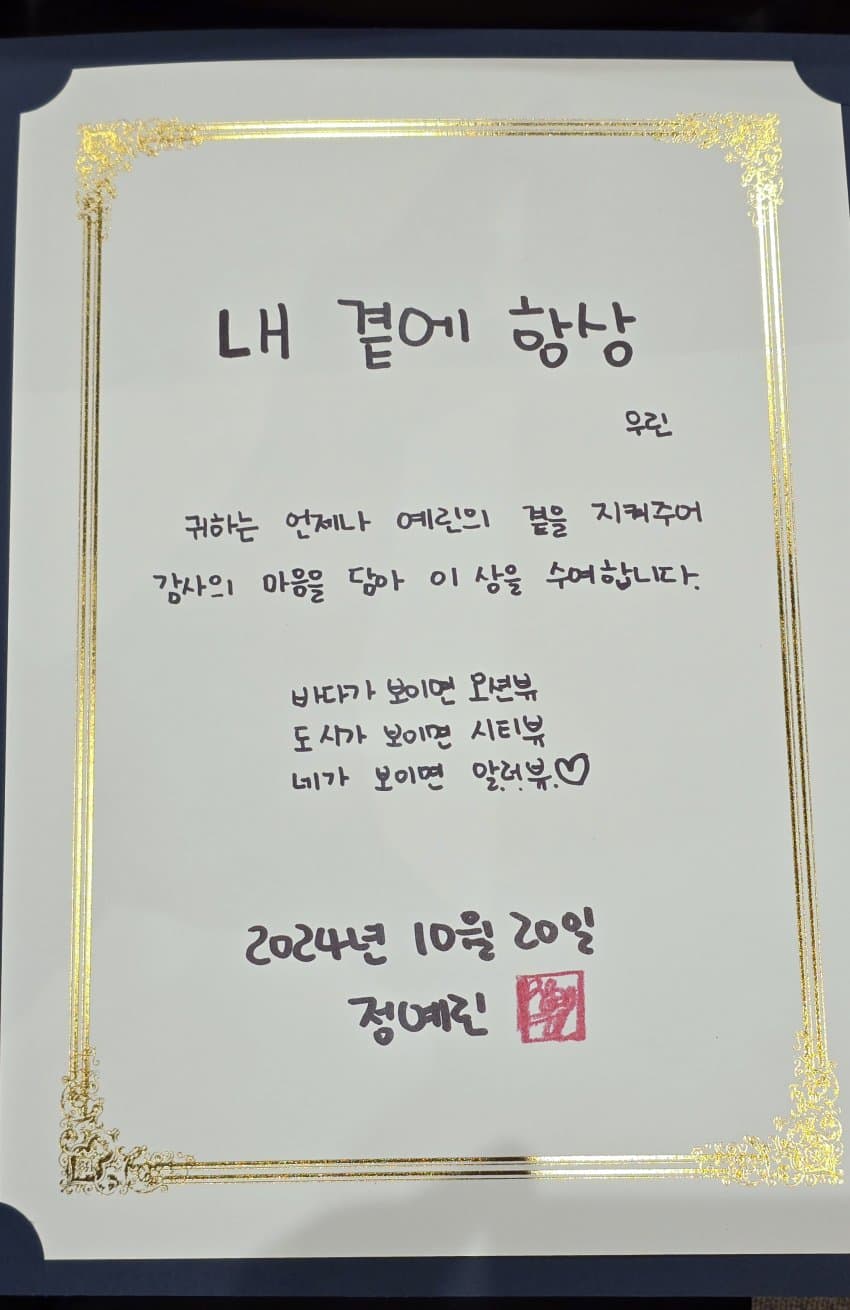 내 곁에 항상
우린
귀하는 언제나 예린의 곁을 지켜주어
감사의 마음을 담아 이 상을 수여합니다.
바다가 보이면 오션뷰
도시가 보이면 시티뷰
네가 보이면 알.러.뷰.♡
2024년 10월 20일
정예린